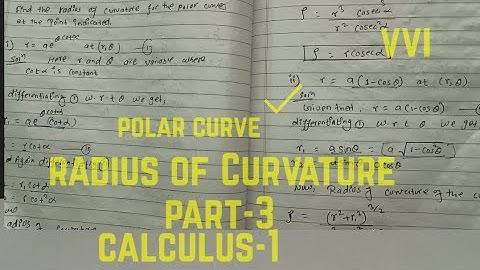 find the radius of curvature for the polar curves
at the point indicated.
i) r = ae^{θcotα} at (r, θ)
soln Here r and θ are variable where
cotα is constant
differentiating ① w.r.t θ we get,
r₁ = ae^{θcotα} (cotα)
= r cotα
= r₁ cotα
= r cot²α
ρ = r³ cosec³α
r² cosec²α
ρ = r cosecα
ii) r = a(1-cosθ) at (r, θ)
soln
Given that, r = a(1-cosθ)
differentiating ① w.r.t θ we get
r₁ = a sinθ = a√1-cos²θ
Now, Radius of curvature of the c
ρ = (r²+r₁²)^{3/2}
VVI
POLAR CURVE
RADIUS OF CURVATURE
PART-3
CALCULUS-1